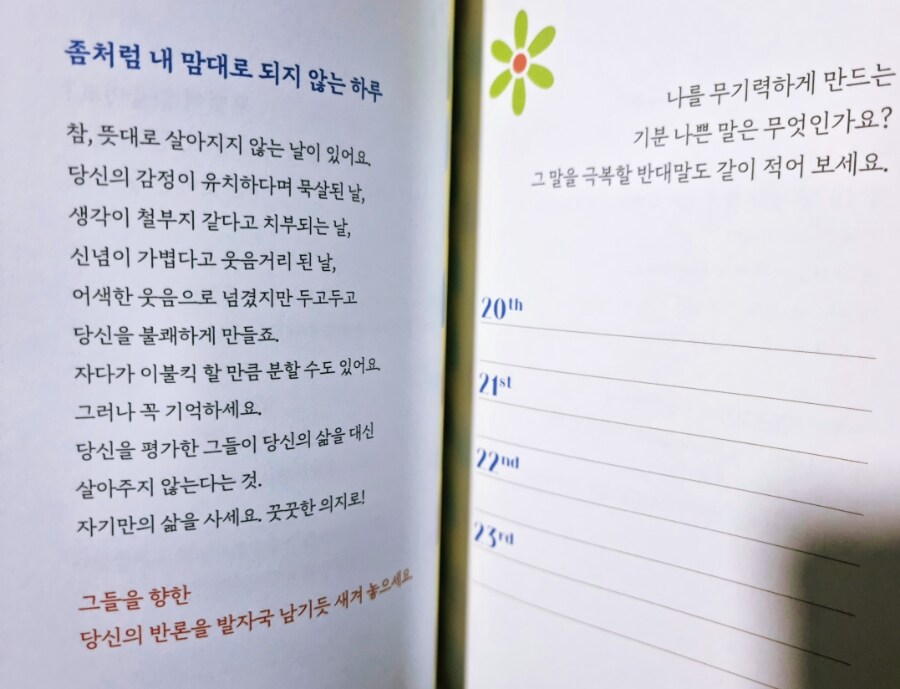 좀처럼 내 맘대로 되지 않는 하루
참, 뜻대로 살아지지 않는 날이 있어요.
당신의 감정이 유치하다며 묵살된 날,
생각이 철부지 같다고 치부되는 날,
신념이 가볍다고 웃음거리 된 날,
어색한 웃음으로 넘겼지만 두고두고
당신을 불쾌하게 만들죠.
자다가 이불킥 할 만큼 분할 수도 있어요.
그러나 꼭 기억하세요.
당신을 평가한 그들이 당신의 삶을 대신
살아주지 않는다는 것.
자기만의 삶을 사세요. 꿋꿋한 의지로!
그들을 향한
당신의 반론을 발자국 남기듯 새겨 놓으세요.
나를 무기력하게 만드는
기분 나쁜 말은 무엇인가요?
그 말을 극복할 반대말도 같이 적어 보세요.
20th
21st
22nd
23rd